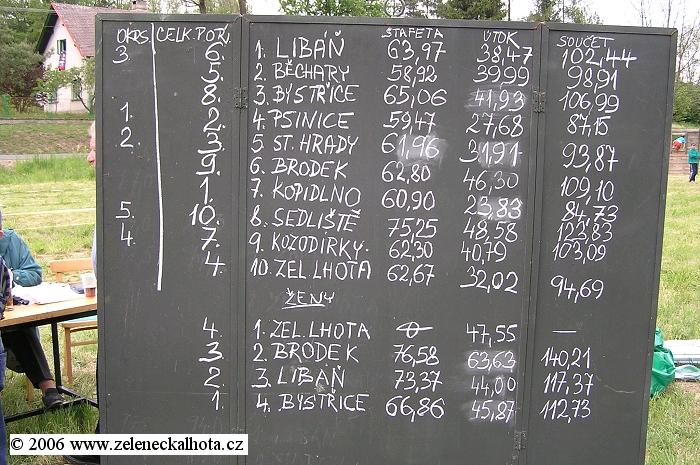 OKRS. CELK. POŘ. ŠTAFETA ÚTOK SOUČET
3. 6. 1. LIBÁŇ 63,97 38,47 102,44
5. 2. BĚCHARY 58,92 39,99 98,91
8. 3. BYSTŘICE 65,06 41,93 106,99
1. 2. 4. PSINICE 59,47 27,68 87,15
2. 3. 5. ST. HRADY 61,96 31,91 93,87
9. 6. BRODEK 62,80 46,30 109,10
1. 7. KOPIDLNO 60,90 23,83 84,73
5. 10. 8. SEDLIŠTĚ 75,25 48,58 123,83
4. 7. 9. KOZODIRKY. 62,30 40,79 103,09
4. 10. ZEL. LHOTA 62,67 32,02 94,69
ŽENY
4. 1. ZEL. LHOTA 0 47,55 —
3. 2. BRODEK 76,58 63,63 140,21
2. 3. LIBÁŇ 73,37 44,00 117,37
1. 4. BYSTŘICE 66,86 45,87 112,73
© 2006 www.zeleneckalhota.cz